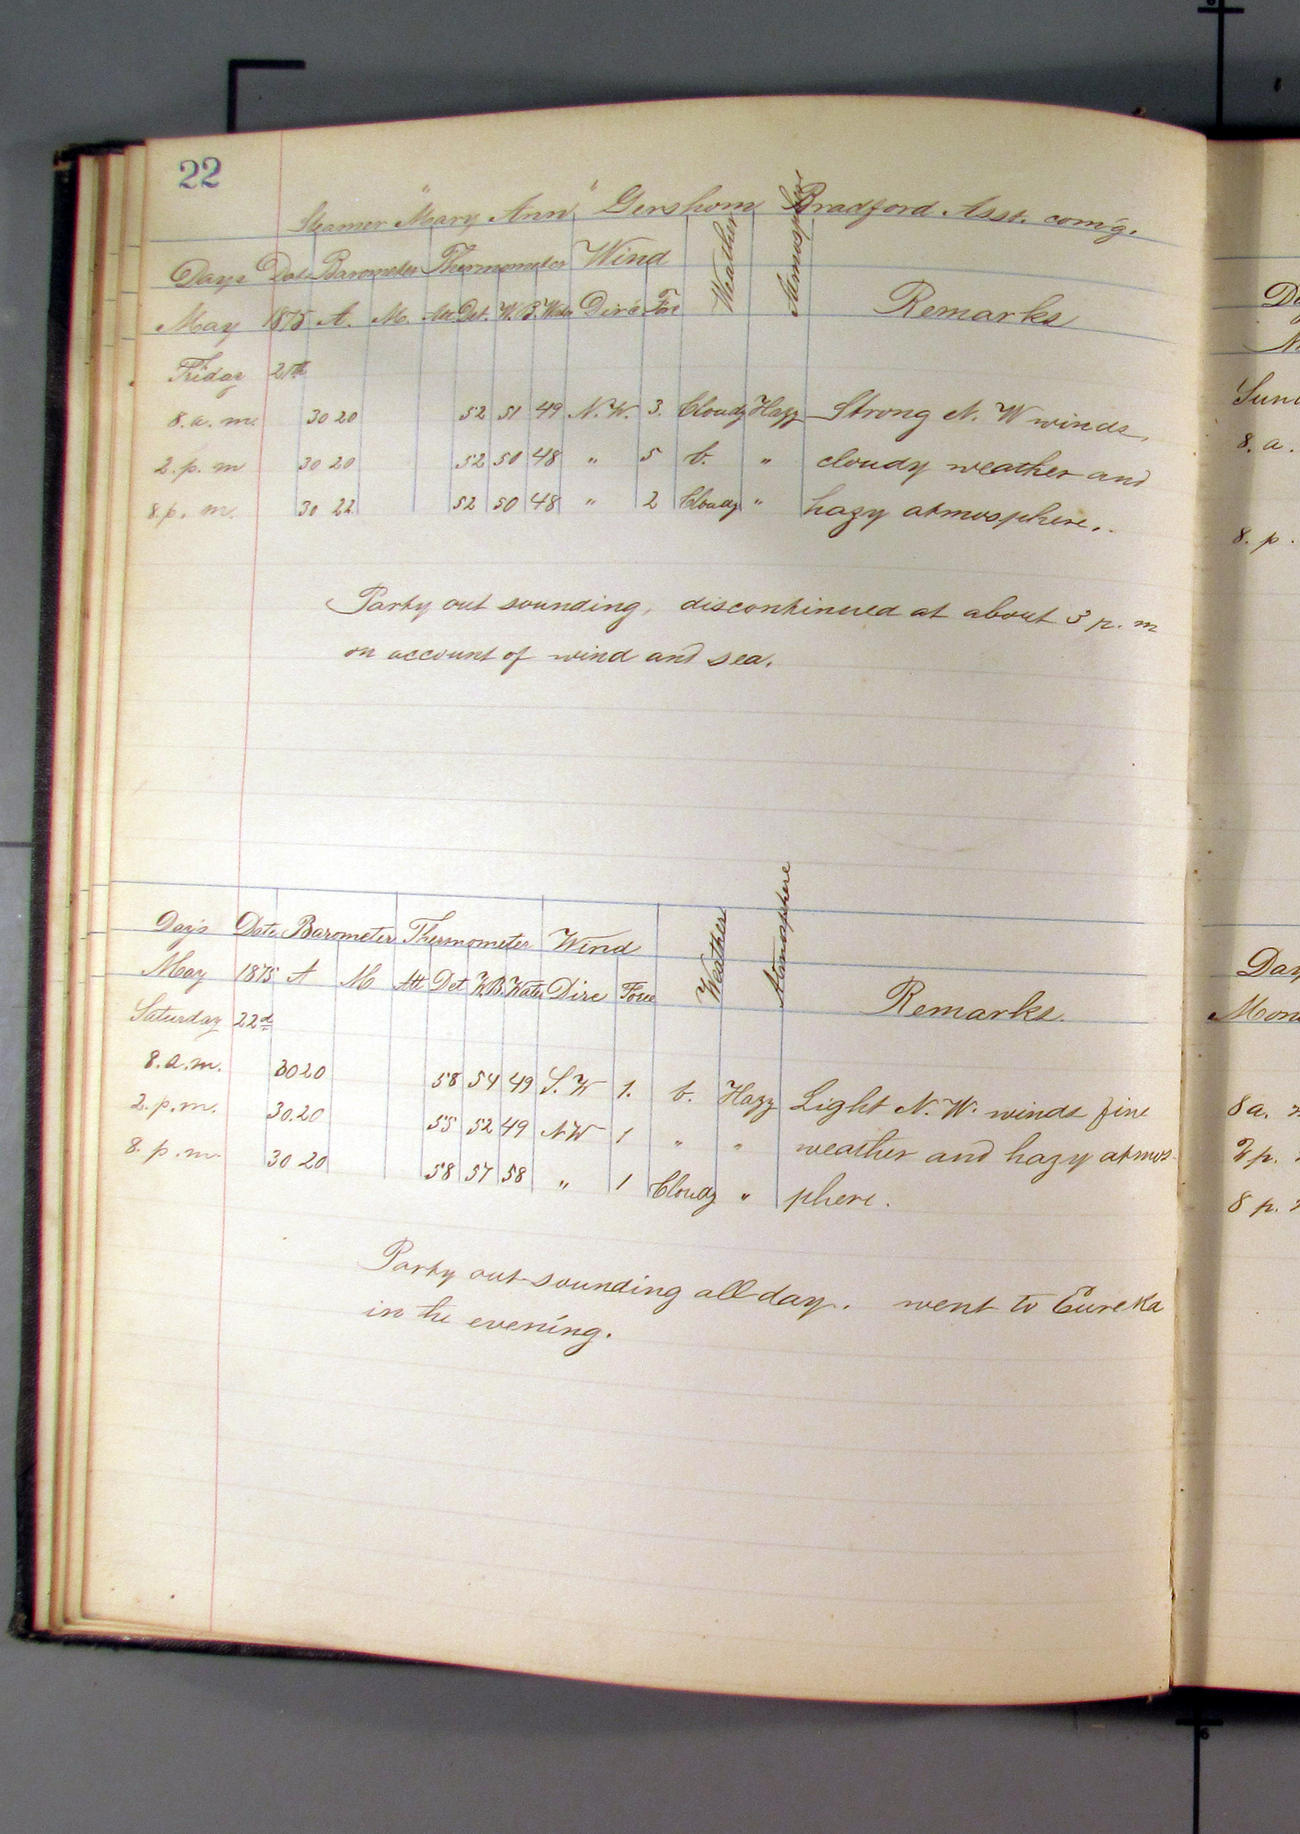 22
Steamer "Mary Ann" Gershom Bradford Asst. com'g.
Days Date Barometer Thermometer Wind Weather Atmosphere Remarks
May 1875 A. M. Att Det. W.B. Water Direc For
Friday 21th
8. a. m. 30 20 52 51 49 N. W. 3. Cloudy Hazy Strong N. W winds,
2. p. m 30 20 52 50 48 " 5 b. " cloudy weather and
8 p. m. 30 22 52 50 48 " 2 Cloudy " hazy atmosphere.
Party out sounding, discontinued at about 3 p. m
on account of wind and sea.
Days Date Barometer Thermometer Wind Weather Atmosphere Remarks.
May 1875 A M Att Det W.B. Water Dire Force
Saturday 22d
8. a. m. 30 20 58 54 49 S. W 1. b. Hazy Light N. W. winds fine
2. p. m. 30.20 55 52 49 N W 1 " " weather and hazy atmos-
8. p. m. 30 20 58 57 58 " 1 Cloudy " phere.
Party out sounding all day. went to Eureka
in the evening.
8. a.
8. p.
8 a.
8 p.